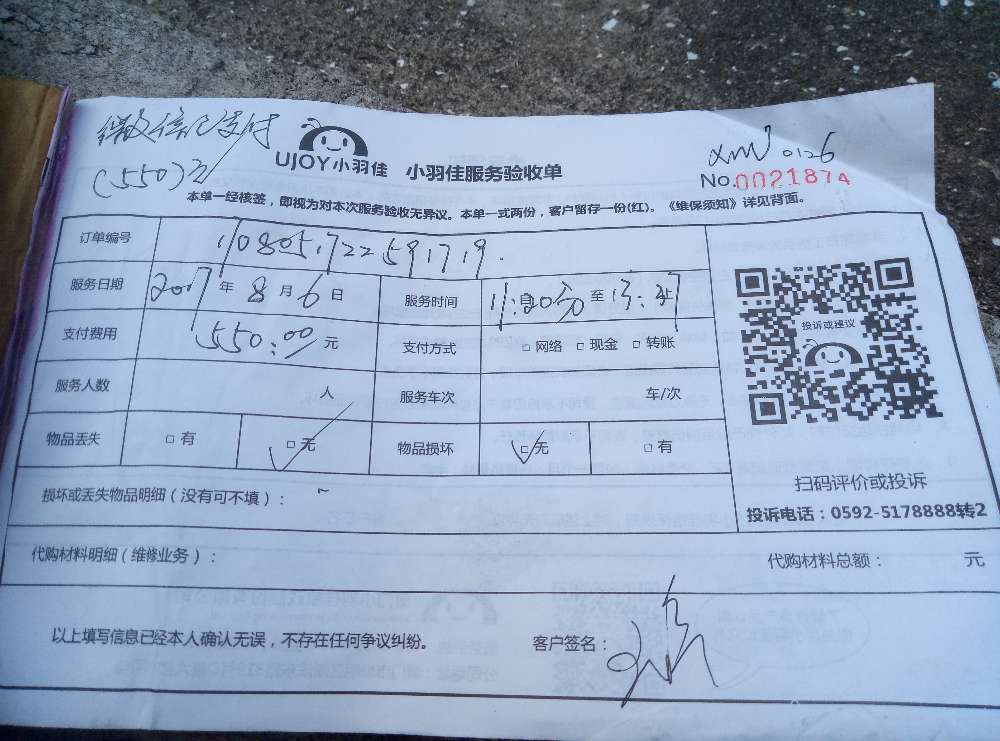 微信已支付
(550)元
UJOY小羽佳 小羽佳服务验收单
XMW 0126
No.0021874
本单一经核签，即视为对本次服务验收无异议。本单一式两份，客户留存一份(红)。《维保须知》详见背面。
订单编号 170805172259 1719
服务日期 2017年8月6日 服务时间 11:20分至13:37
支付费用 550.00元 支付方式 □网络 □现金 □转账
服务人数 人 服务车次 车/次
物品丢失 □有 □无 物品损坏 □无 □有
投诉或建议
扫码评价或投诉
投诉电话：0592-5178888转2
损坏或丢失物品明细（没有可不填）：
代购材料明细（维修业务）： 代购材料总额： 元
以上填写信息已经本人确认无误，不存在任何争议纠纷。 客户签名：